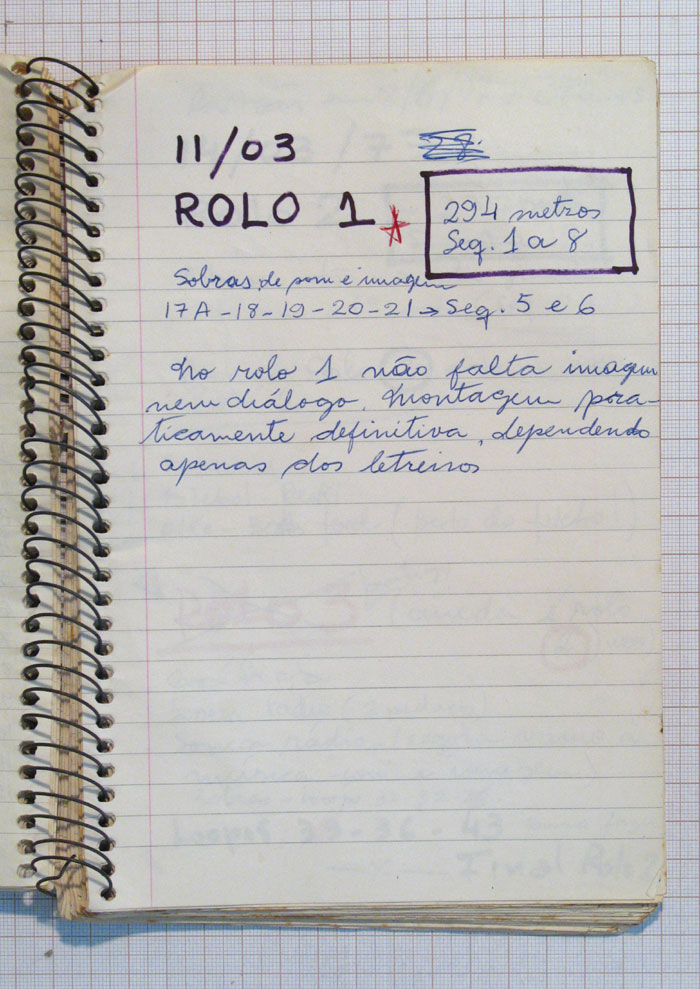 11/03
ROLO 1
294 metros
Seq. 1 a 8
Sobras de som e imagem
17A-18-19-20-21→Seq. 5 e 6
No rolo 1 não falta imagem
nem diálogo. Montagem pora-
ticamente definitiva, dependendo
apenas dos letreiros